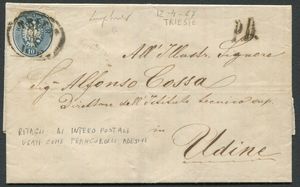 12-4-67
TRIESTE
P.D.
All'Illustr. Signore
Sig. Alfonso Cossa
Direttore dell'Istituto tecnico sup.
in
Udine
RITAGLI DI INTERO POSTALE
USATI COME FRANCOBOLLI ADESIVI